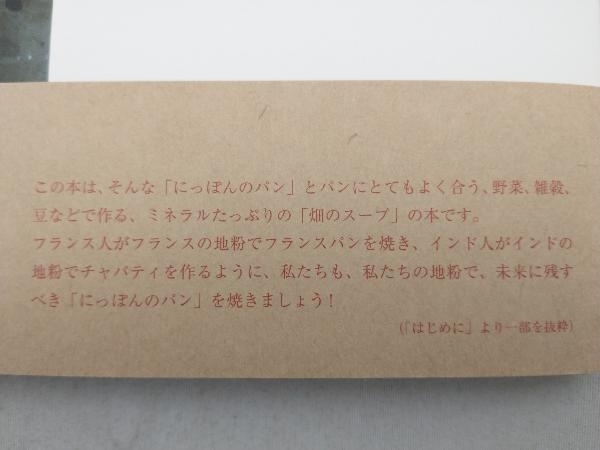 この本は、そんな「にっぽんのパン」とパンにとてもよく合う、野菜、雑穀、
豆などで作る、ミネラルたっぷりの「畑のスープ」の本です。
フランス人がフランスの地粉でフランスパンを焼き、インド人がインドの
地粉でチャパティを作るように、私たちも、私たちの地粉で、未来に残す
べき「にっぽんのパン」を焼きましょう！
（「はじめに」より一部を抜粋）